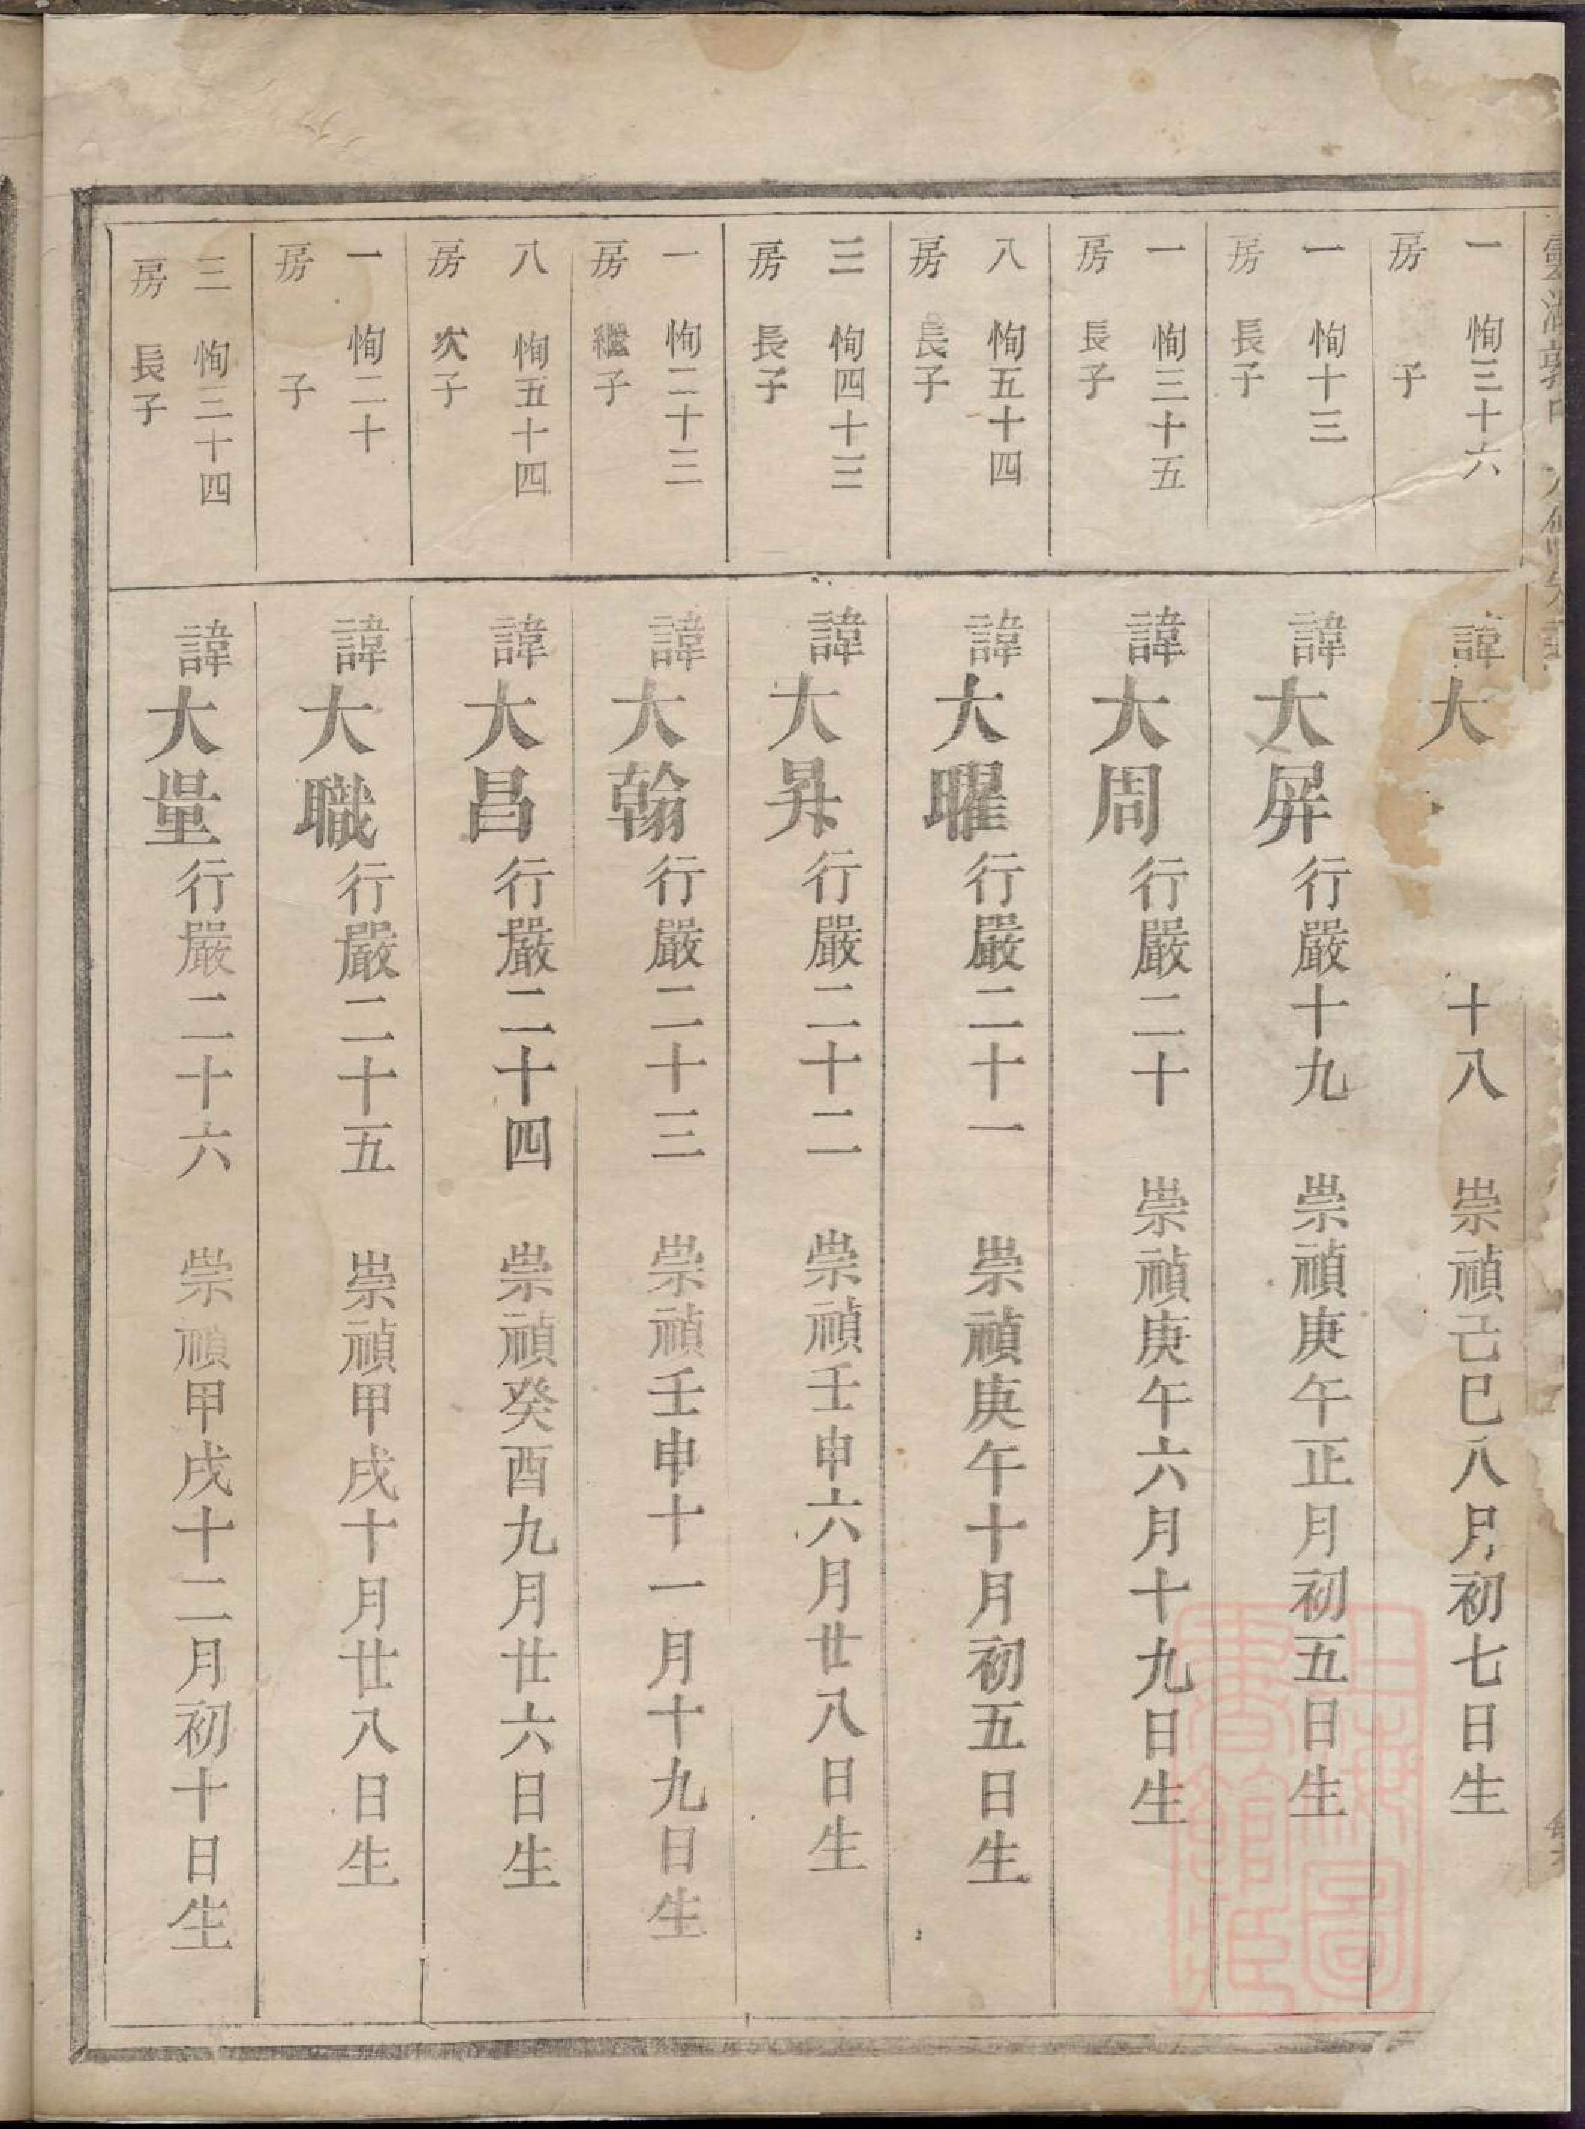 一房 恂三十六子
諱大 十八 崇禎己巳八月初七日生
一房 恂十三長子
諱大屏行嚴十九 崇禎庚午正月初五日生
一房 恂三十五長子
諱大周行嚴二十 崇禎庚午六月十九日生
八房 恂五十四長子
諱大曜行嚴二十一 崇禎庚午十月初五日生
三房 恂四十三長子
諱大昇行嚴二十二 崇禎壬申六月廿八日生
一房 恂二十三繼子
諱大翰行嚴二十三 崇禎壬申十一月十九日生
八房 恂五十四次子
諱大昌行嚴二十四 崇禎癸酉九月廿六日生
一房 恂二十子
諱大職行嚴二十五 崇禎甲戌十月廿八日生
三房 恂三十四長子
諱大量行嚴二十六 崇禎甲戌十二月初十日生
上海圖書館藏